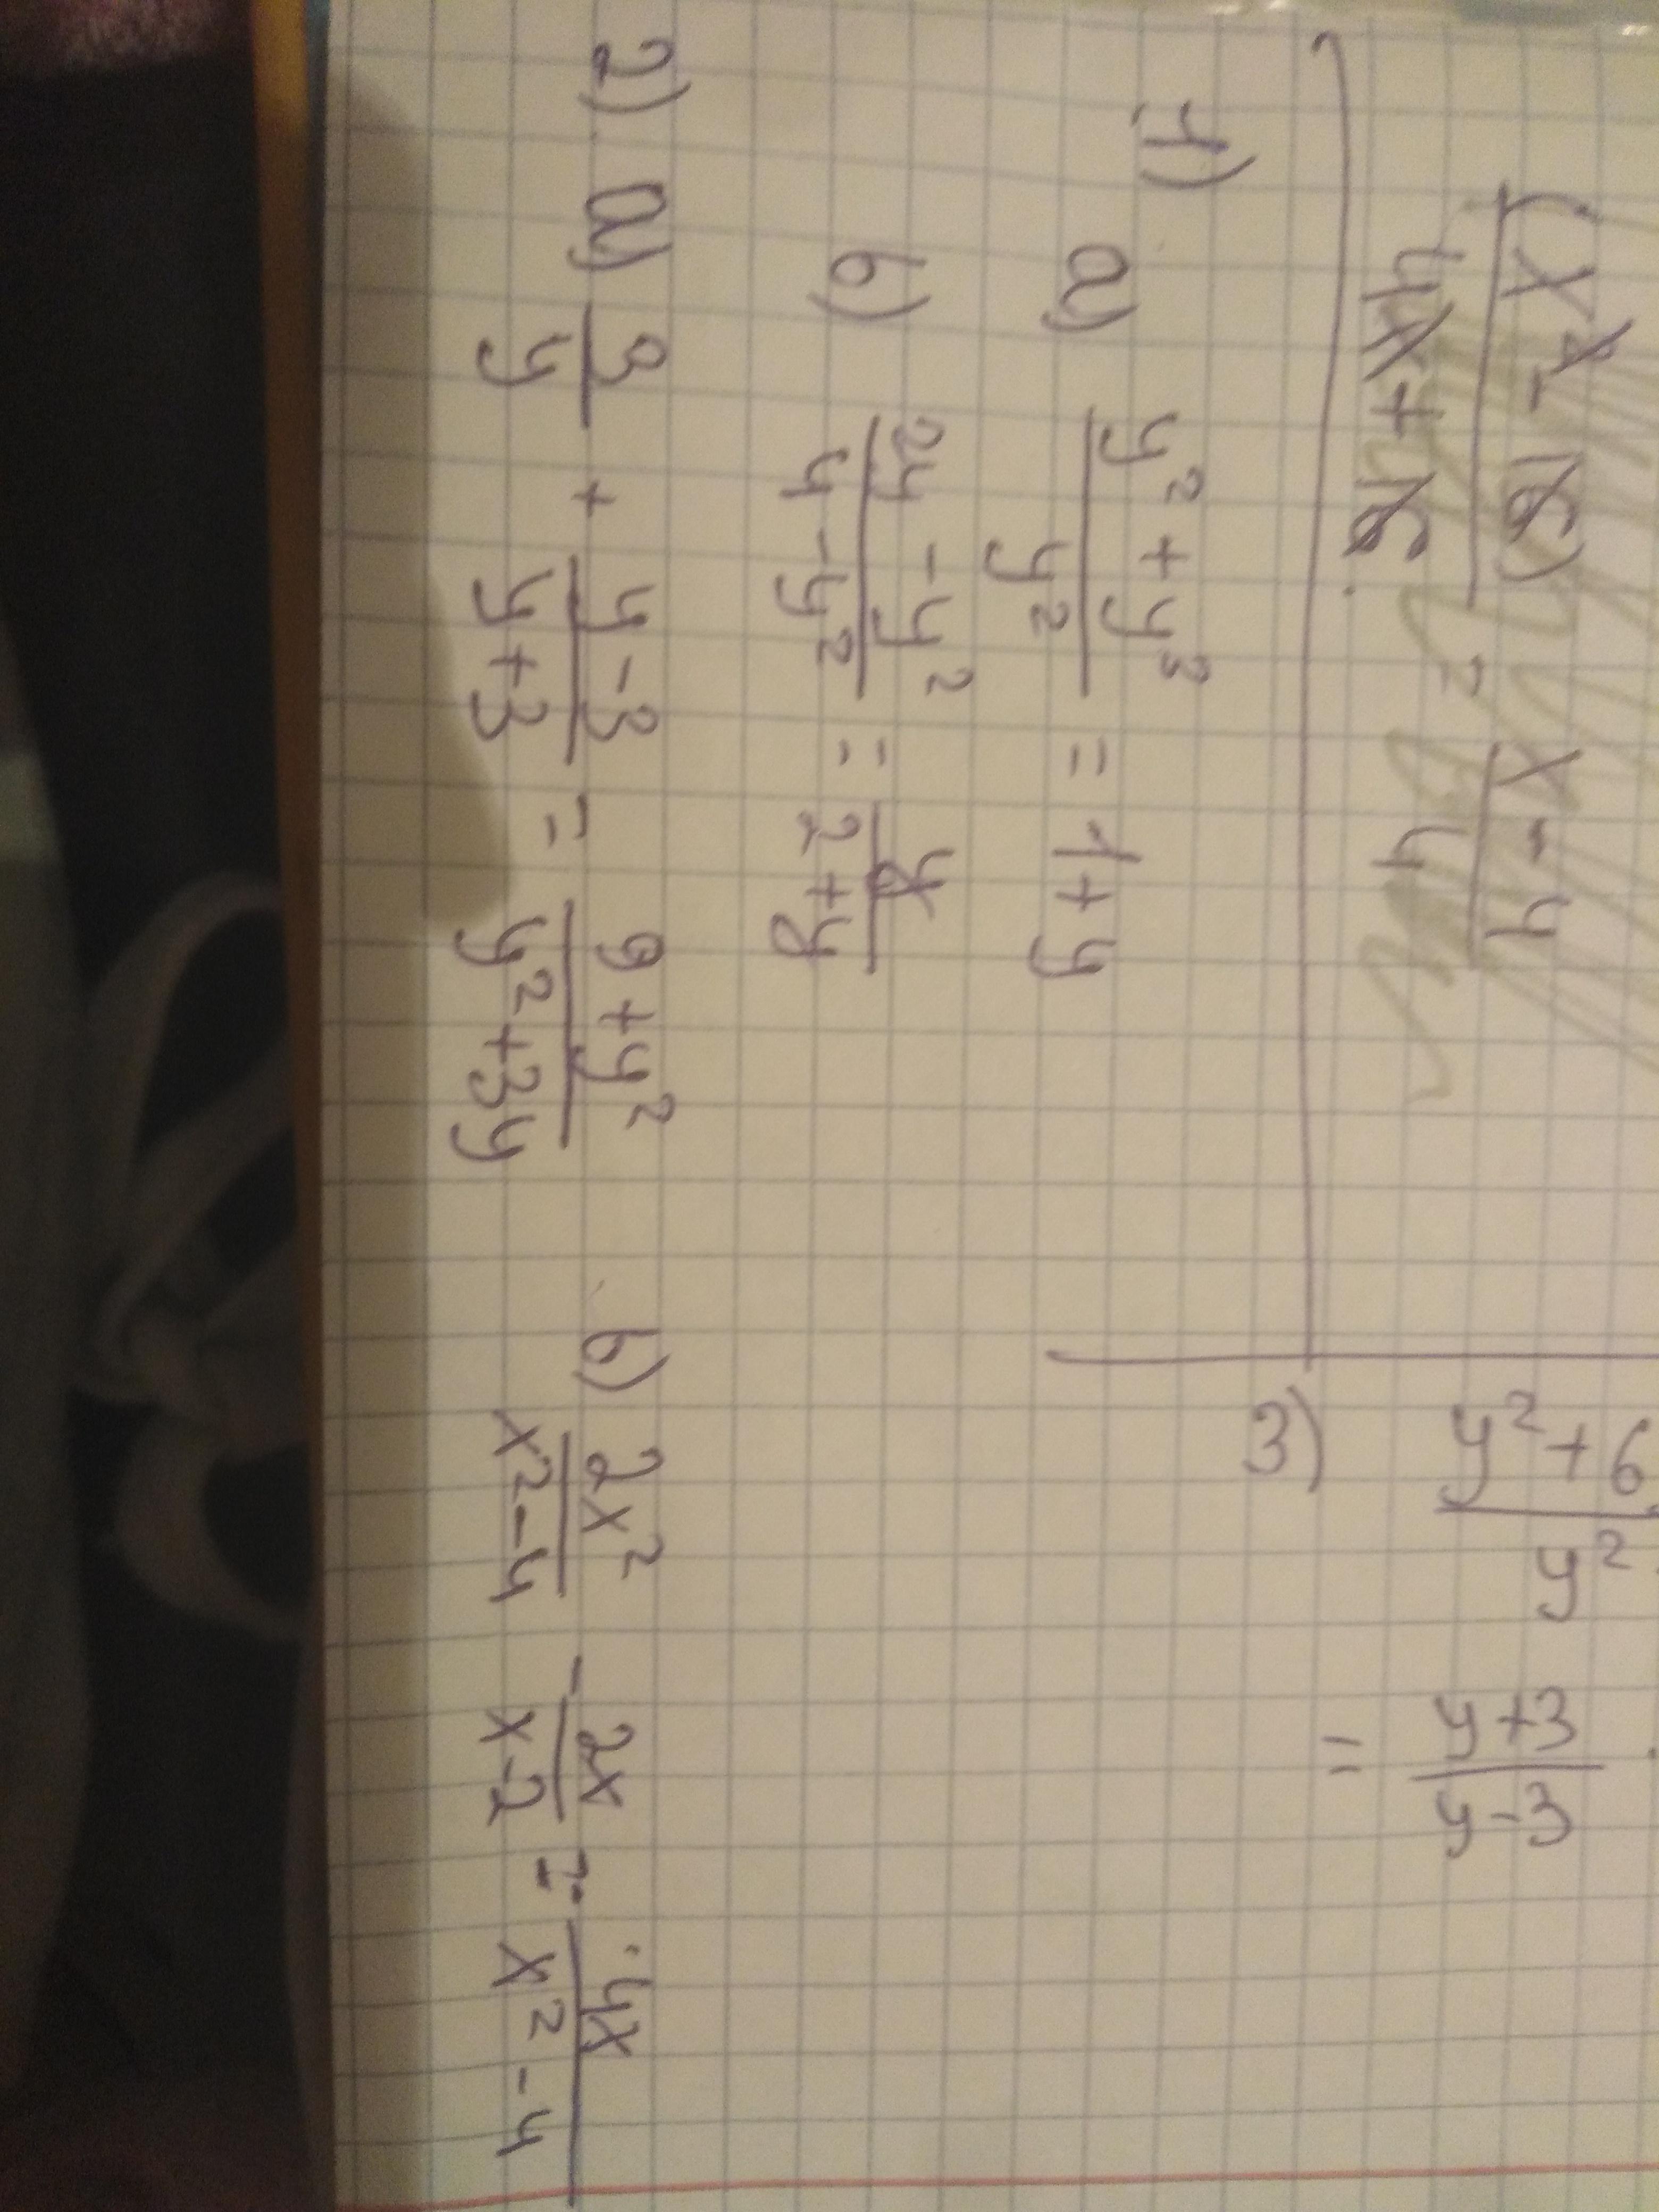 (x² - 16) / (4x + 16) = (x - 4) / 4
1)
a) (y² + y³) / y² = 1 + y
b) (2y - y²) / (4 - y²) = y / (2 + y)
2) a) 3/y + (y - 3) / (y + 3) = (9 + y²) / (y² + 3y)
b) 2x² / (x² - 4) - 2x / (x - 2) = - 4x / (x² - 4)
3)
y² + 6
y²
= (y + 3) / (y - 3)